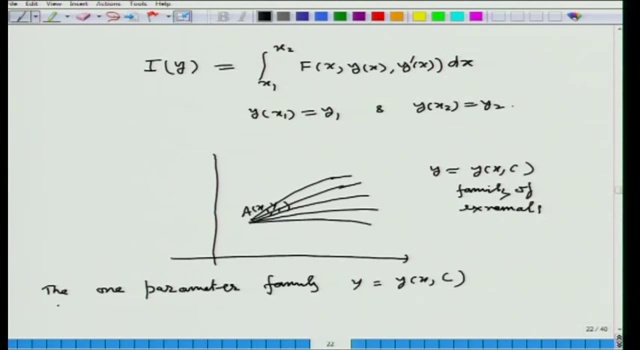 Edit View Insert Actions Tools Help
I(y) = ∫_{x1}^{x2} F(x, y(x), y'(x)) dx
y(x1) = y1 & y(x2) = y2.
y = y(x, C)
family of
exremals
A(x1, y1)
The one parameter family y = y(x, C)
22 / 40
22